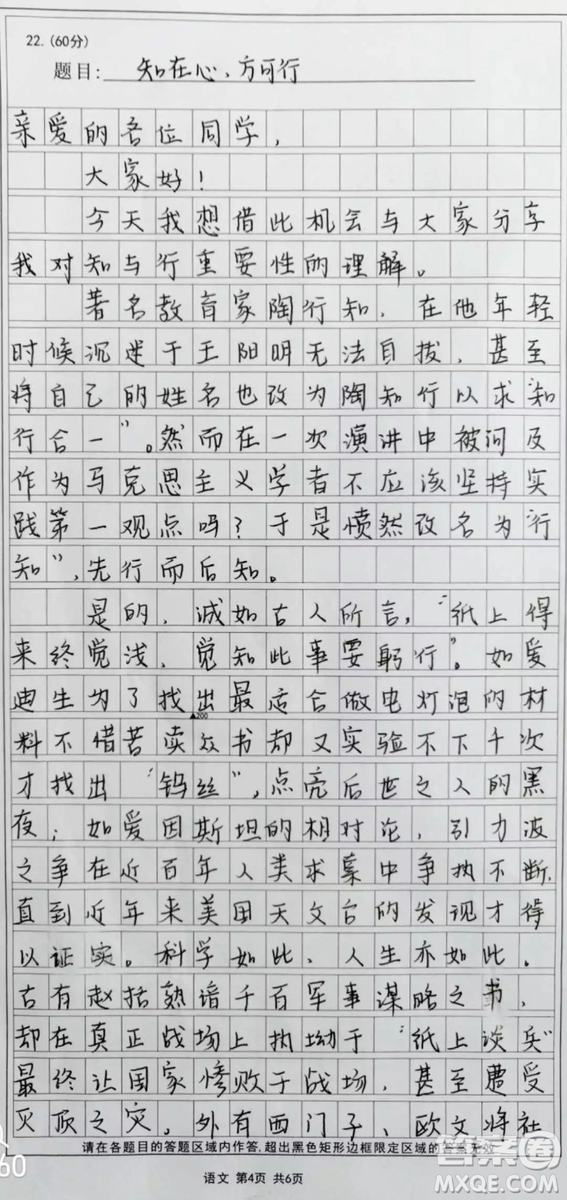 22.(60分)
题目: 知在心,方可行
亲爱的各位同学,
大家好!
今天我想借此机会与大家分享
我对知与行重要性的理解。
著名教育家陶行知,在他年轻
时候沉迷于王阳明无法自拔,甚至
将自己的姓名也改为陶知行以求“知
行合一”。然而在一次演讲中被问及
作为马克思主义学者不应该坚持实
践第一观点吗?于是愤然改名为“行
知”,先行而后知。
是的,诚如古人所言,“纸上得
来终觉浅,觉知此事要躬行”。如爱
迪生为了找出最适合做电灯泡的材
▲200
料不惜苦读众书却又实验不下千次
才找出“钨丝”,点亮后世之人的黑
夜;如爱因斯坦的相对论,引力波
之争在近百年人类求索中争执不断,
直到近年来美国天文台的发现才得
以证实。科学如此,人生亦如此。
古有赵括熟谙千百军事谋略之书,
却在真正战场上执拗于“纸上谈兵”
最终让国家惨败于战场,甚至遭受
灭顶之灾,外有西门子、欧文将社
请在各题目的答题区域内作答,超出黑色矩形边框限定区域的答案无效
60
语文 第4页 共6页